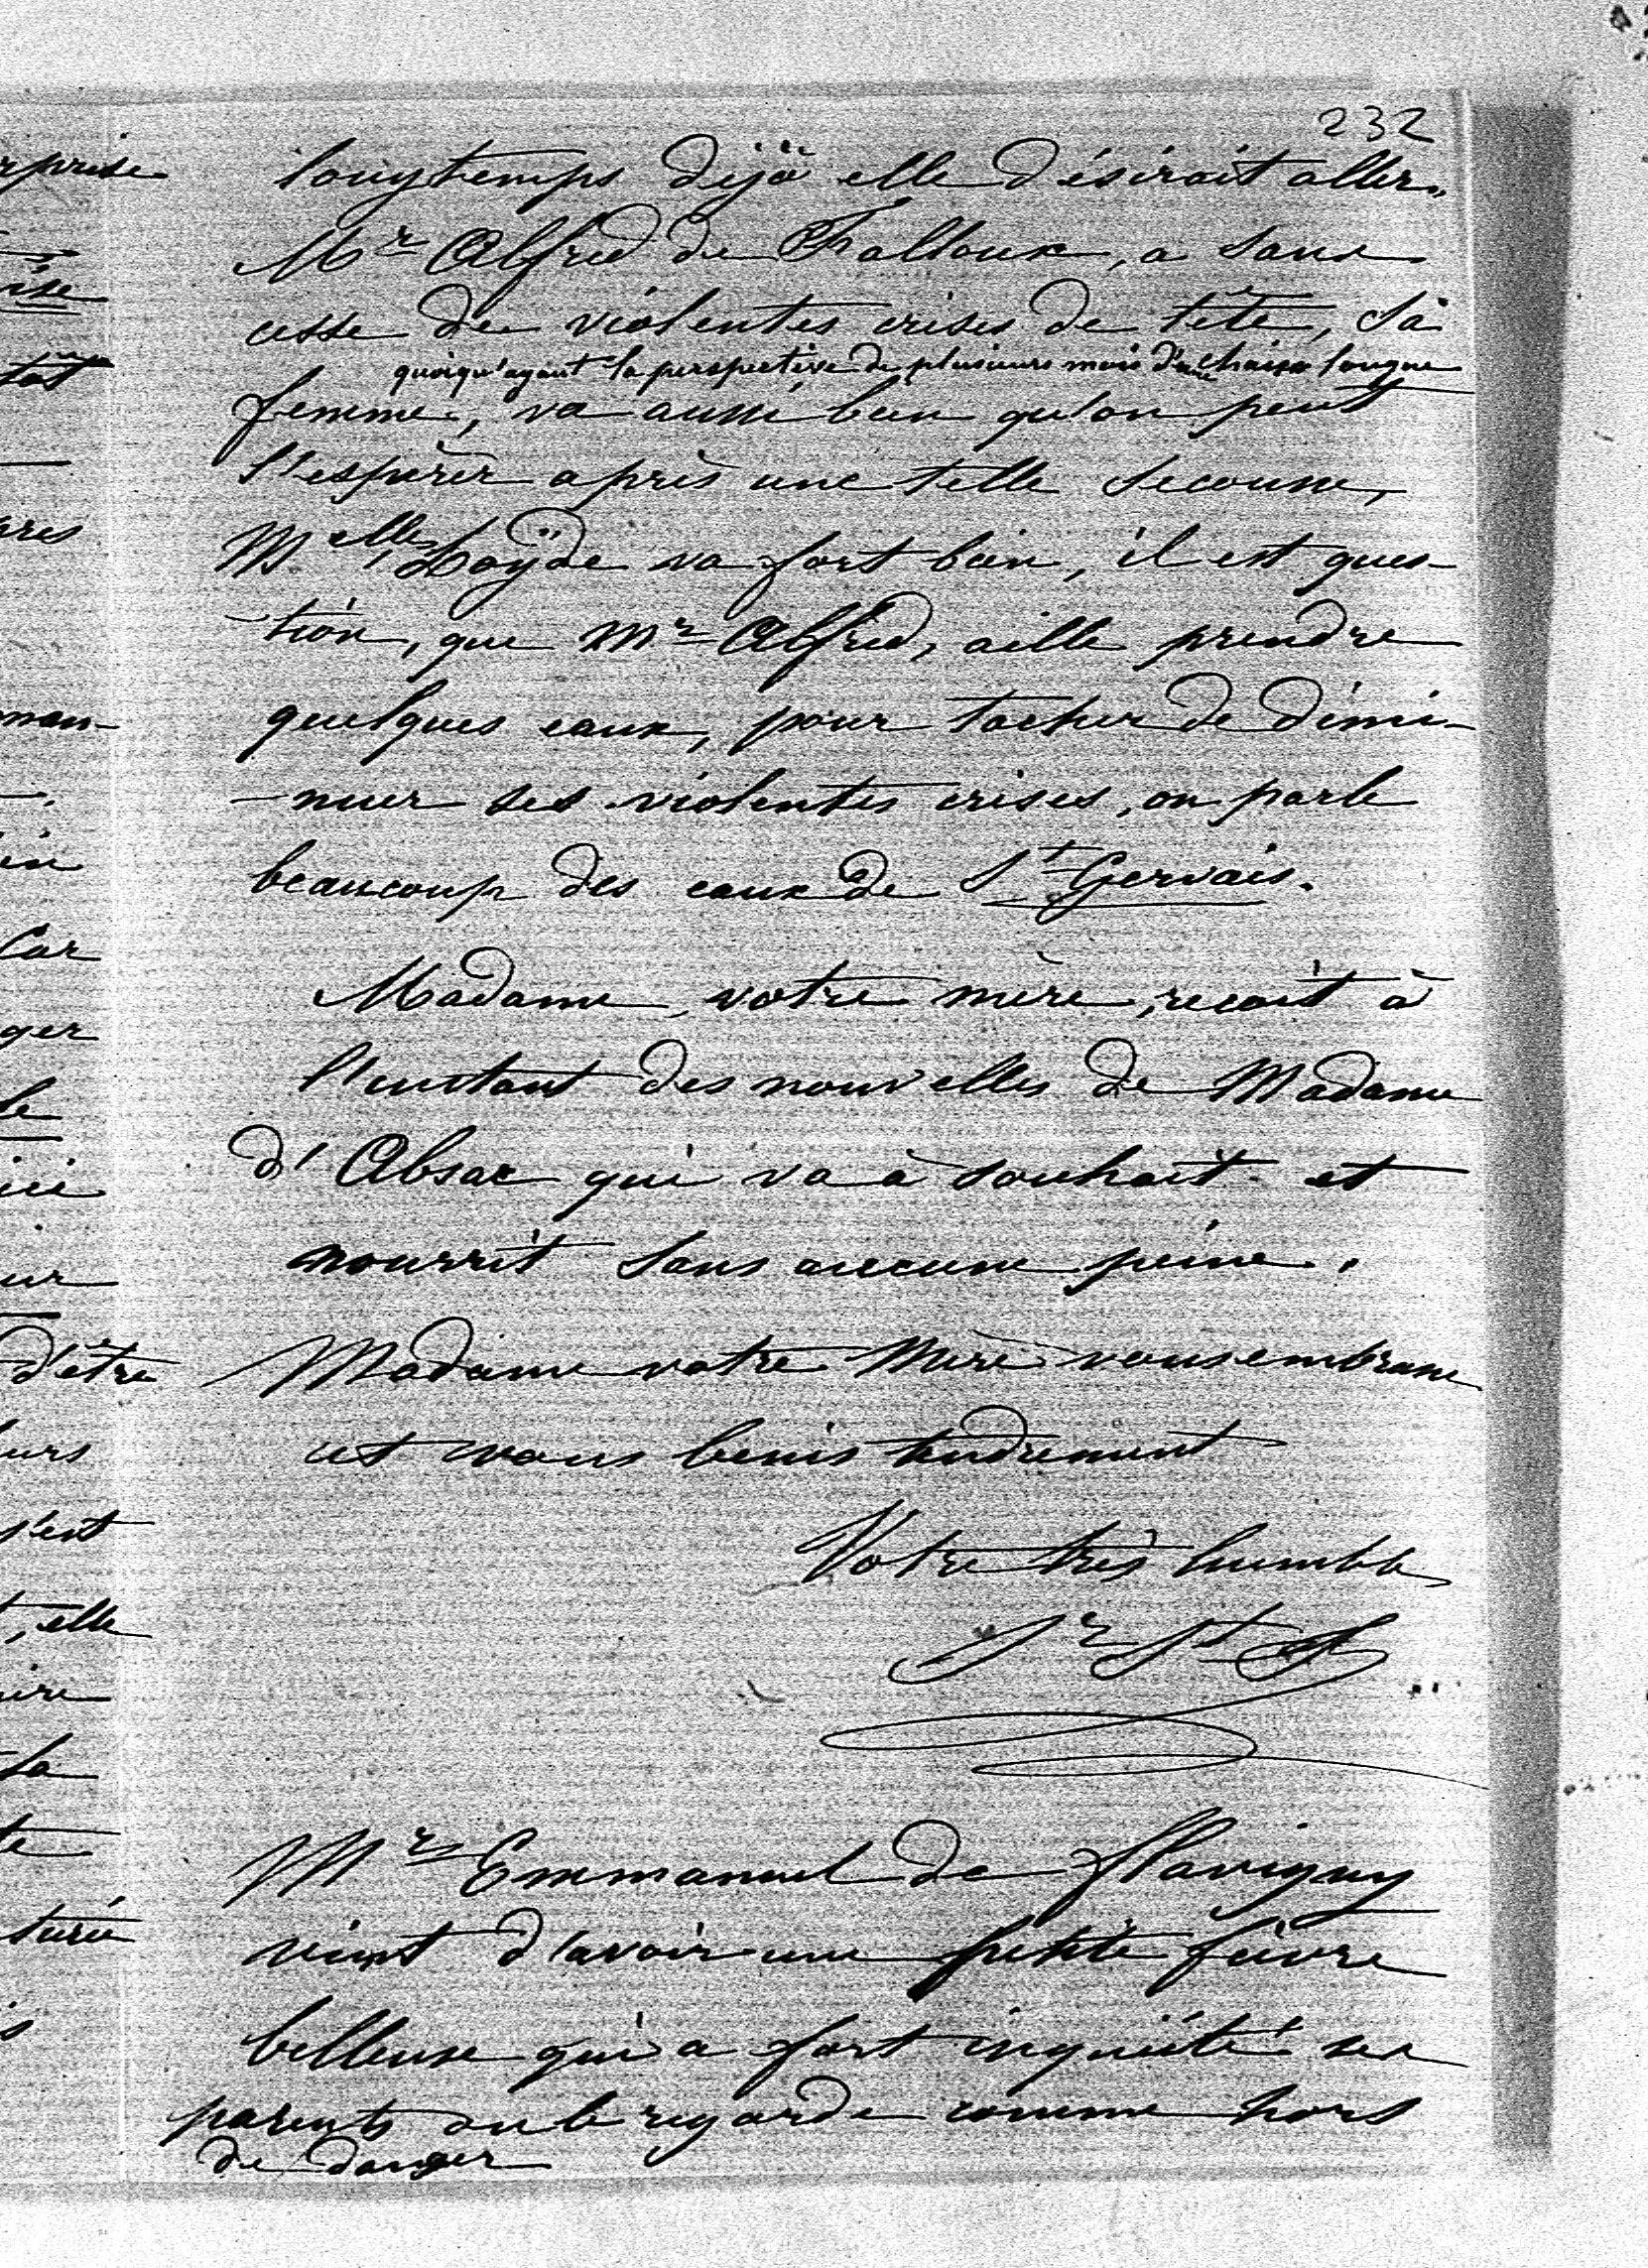 232
longtemps déjà elle désirait aller.
Mr Alfred de Falloux, a sans
cesse de violentes crises de tête, sa
quoiqu'ayant la perspective de plusieurs mois d'une chaise longue
femme, va aussi bien qu'on peut
l'espérer après une telle secousse,
Melle Loÿde va fort bien, il est ques-
-tion, que Mr Alfred, aille prendre
quelques eaux, pour tacher de dimi-
-nuer ses violentes crises, on parle
beaucoup des eaux de St Gervais.
Madame, votre mère, recoit à
l'instant des nouvelles de Madame
d'Absac qui va à souhait et
nourrit sans aucune peine.
Madame votre Mère vous embrasse
et vous benis tendrement
Votre très humble
Sr St S
Mr Emmanuel de flavigny
vient d'avoir une petite fièvre
billeuse qui a fort inquiété ses
parents on le regarde comme hors
de danger